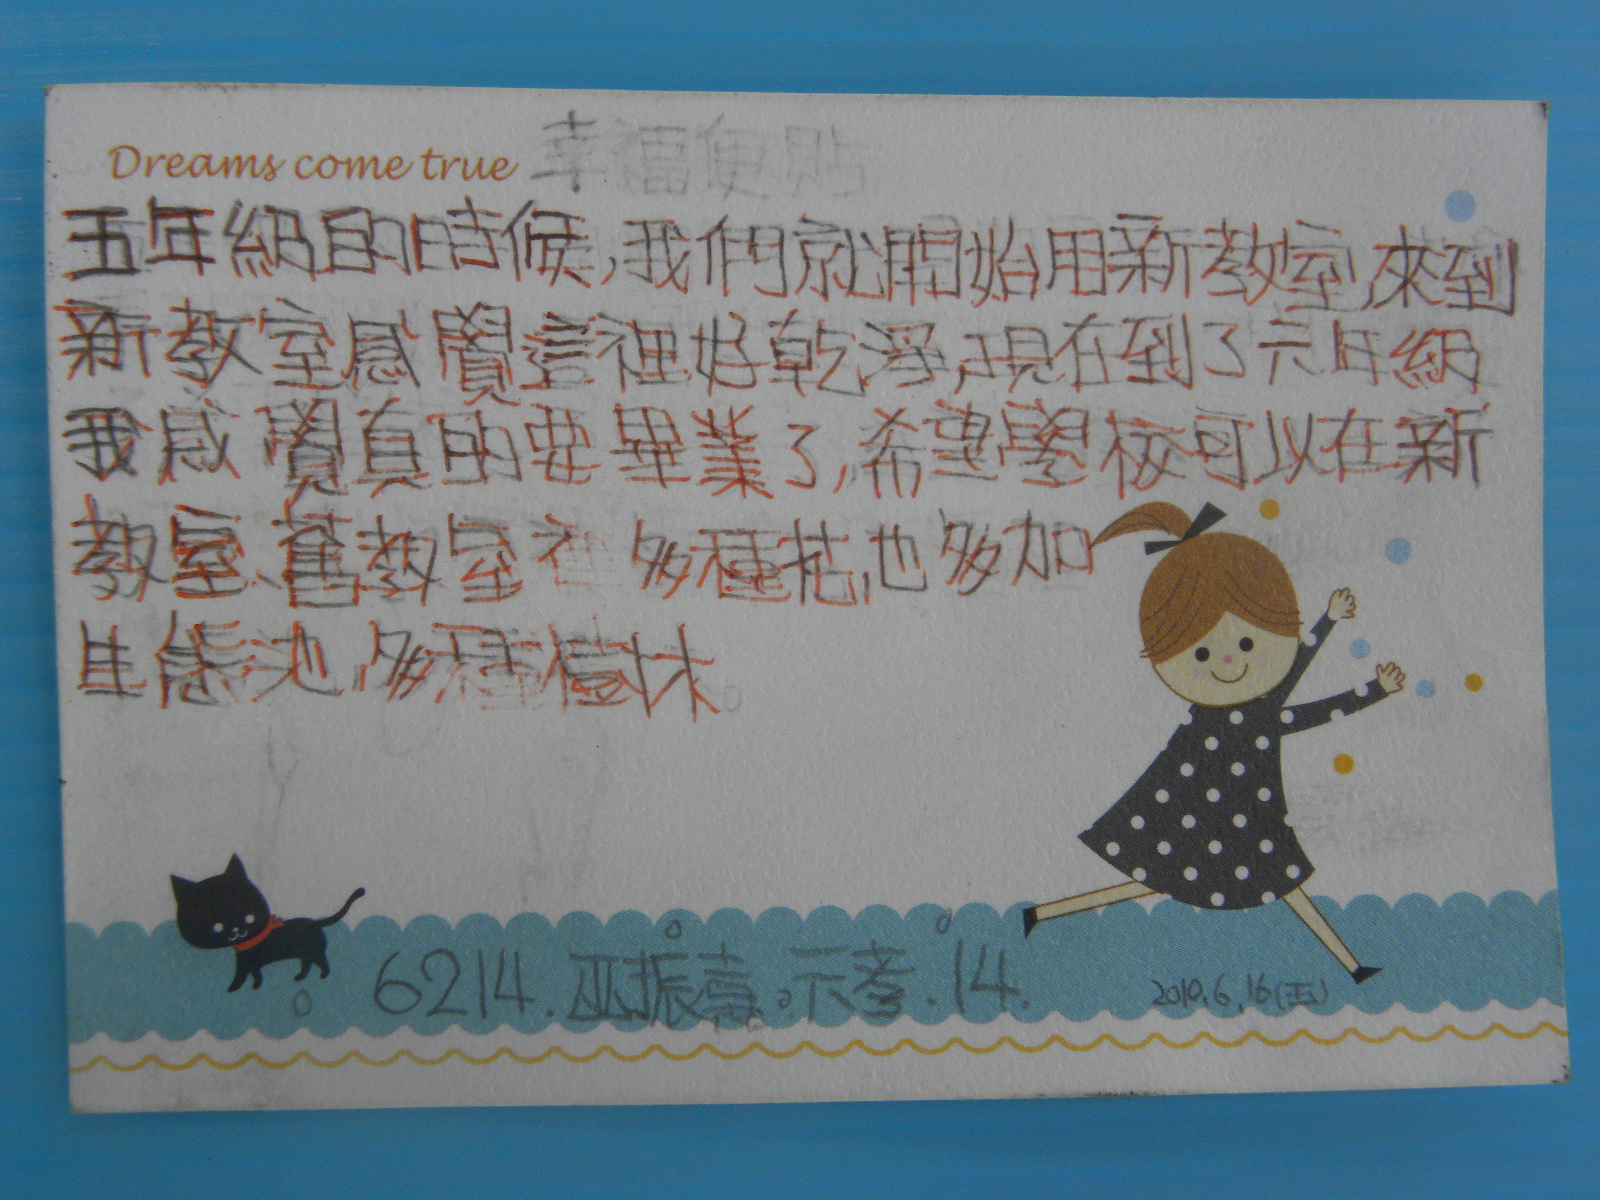 Dreams come true 幸福便貼
五年級的時候,我們就開始用新教室,來到
新教室感覺這裡好乾淨,現在到了六年級
我感覺真的要畢業了,希望學校可以在新
教室、舊教室裡多種花,也多加
生態池,多種樹木。
6214.巫振 .示 .14.
2010.6.16(五)